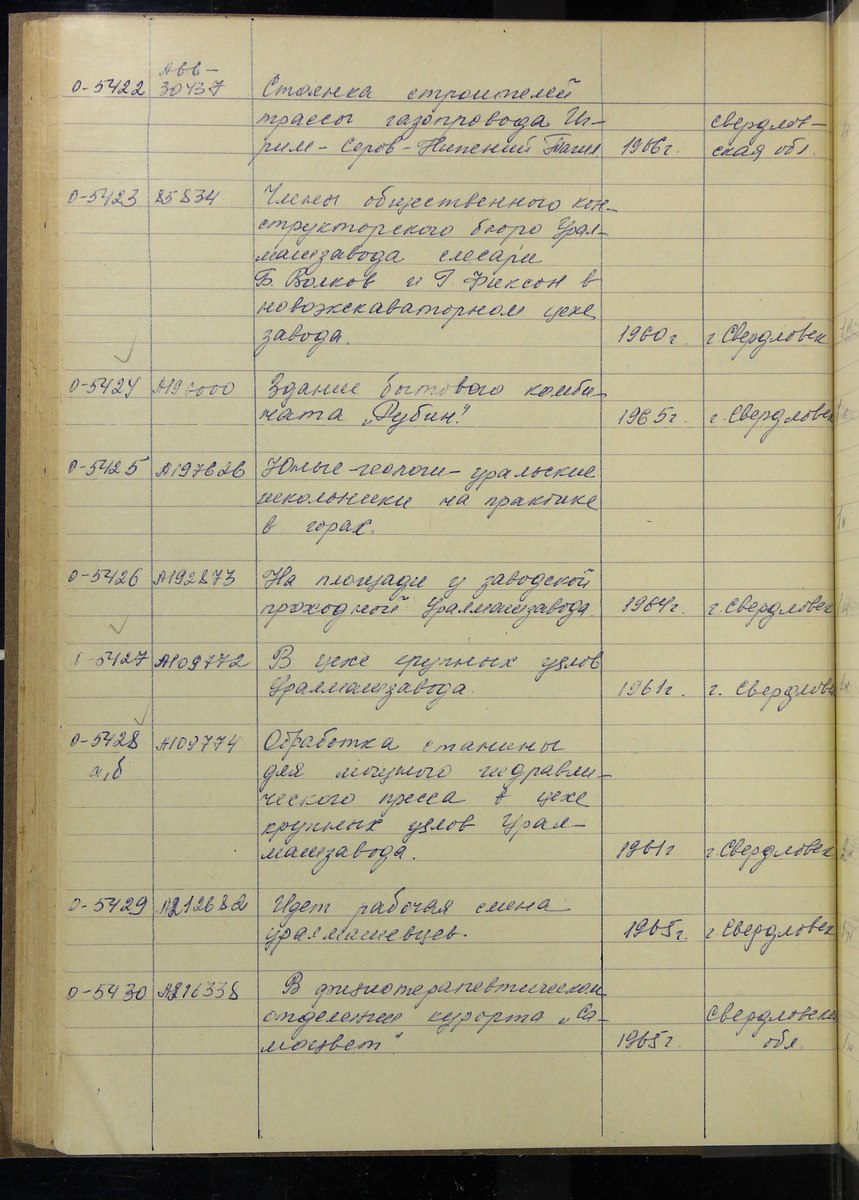 0-5422 АВВ-
30437 Стоянка строителей
трассы газопровода Иг-
рим - Серов - Нижний Тагил 1966г. Свердлов-
ская обл.
0-5423 85834 Члены общественного кон-
структорского бюро Урал-
машзавода слесари
Б. Волков и Г. Фиксон в
новоэкскаваторном цехе
завода. 1960г. г. Свердловск
0-5424 Здание бытового комби-
ната „Рубин". 1965г. г. Свердловск
0-5425 А197626 Юные геологи - уральские
школьники на практике
в горах.
0-5426 А192873 На площади у заводской
проходной Уралмашзавода. 1964г. г. Свердловск
0-5427 А109772 В цехе крупных узлов
Уралмашзавода. 1961г. г. Свердловск
0-5428 А109774 Обработка станины
а,б для мощного гидравли-
ческого пресса в цехе
крупных узлов Урал-
машзавода. 1961г г. Свердловск
0-5429 А212682 Идет рабочая смена
уралмашевцев. 1965г. г. Свердловск
0-5430 А216338 В физиотерапевтическом
отделение курорта „Са-
моцвет" 1965г. Свердловская
обл.